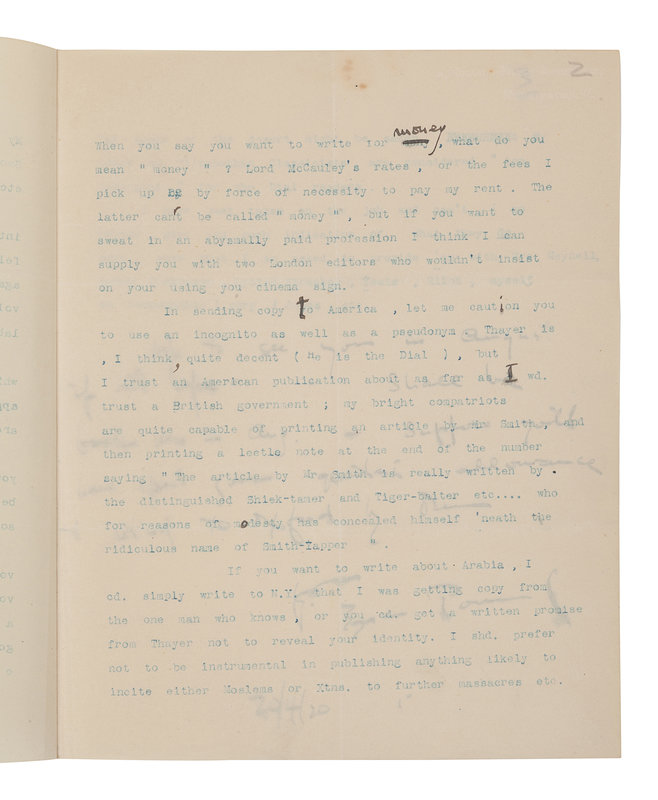 2
When you say you want to write for money, what do you
mean " money " ? Lord McCauley's rates , or the fees I
pick up by force of necessity to pay my rent . The
latter can't be called " money " , but if you want to
sweat in an abysmally paid profession I think I can
supply you with two London editors who wouldn't insist
on your using you cinema sign.
In sending copy to America , let me caution you
to use an incognito as well as a pseudonym . Thayer is
, I think, quite decent ( he is the Dial ) , but
I trust an American publication about as far as I wd.
trust a British government ; my bright compatriots
are quite capable of printing an article by Mr Smith , and
then printing a leetle note at the end of the number
saying " The article by Mr Smith is really written by
the distinguished Shiek-tamer and Tiger-baiter etc.... who
for reasons of modesty has concealed himself 'neath the
ridiculous name of Smith-Yapper " .
If you want to write about Arabia , I
cd. simply write to N.Y. that I was getting copy from
the one man who knows , or you cd. get a written promise
from Thayer not to reveal your identity. I shd. prefer
not to be instrumental in publishing anything likely to
incite either Moslems or Xtns. to further massacres etc.